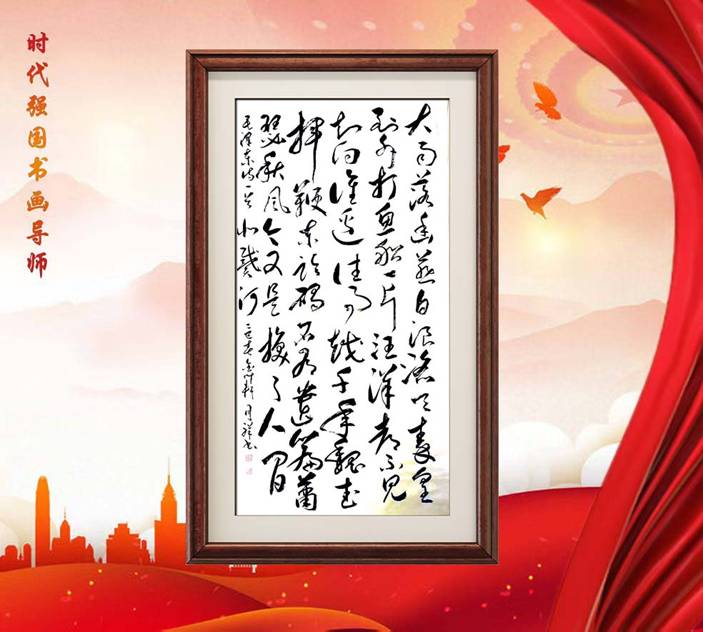 时代强国书画导师
大雨落幽燕白浪滔天秦皇
岛外打鱼船一片汪洋都不见
知向谁边往事越千年魏武
挥鞭东临碣石有遗篇萧
瑟秋风今又是换了人间
毛泽东诗一首北戴河